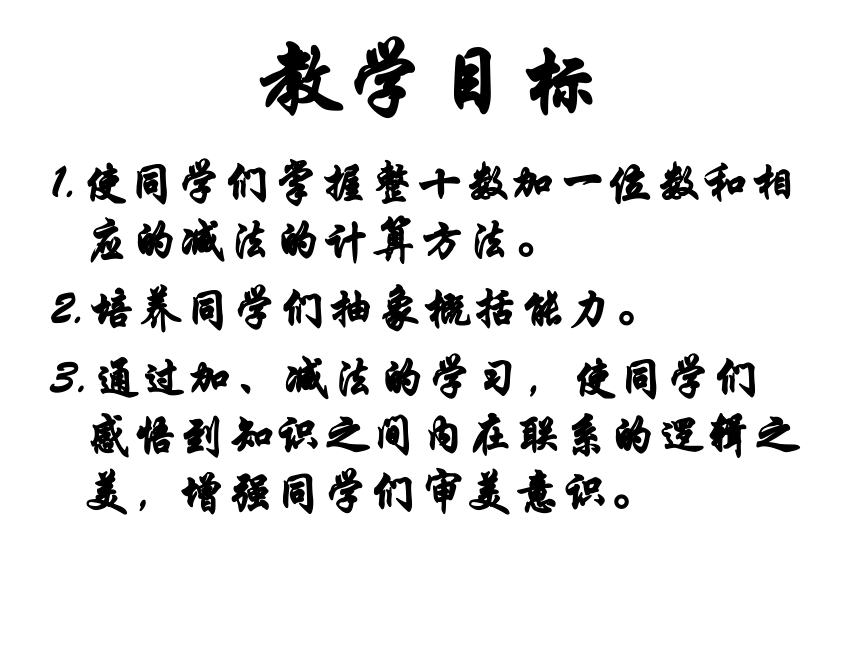 教学目标
1.使同学们掌握整十数加一位数和相
应的减法的计算方法。
2.培养同学们抽象概括能力。
3.通过加、减法的学习，使同学们
感悟到知识之间内在联系的逻辑之
美，增强同学们审美意识。